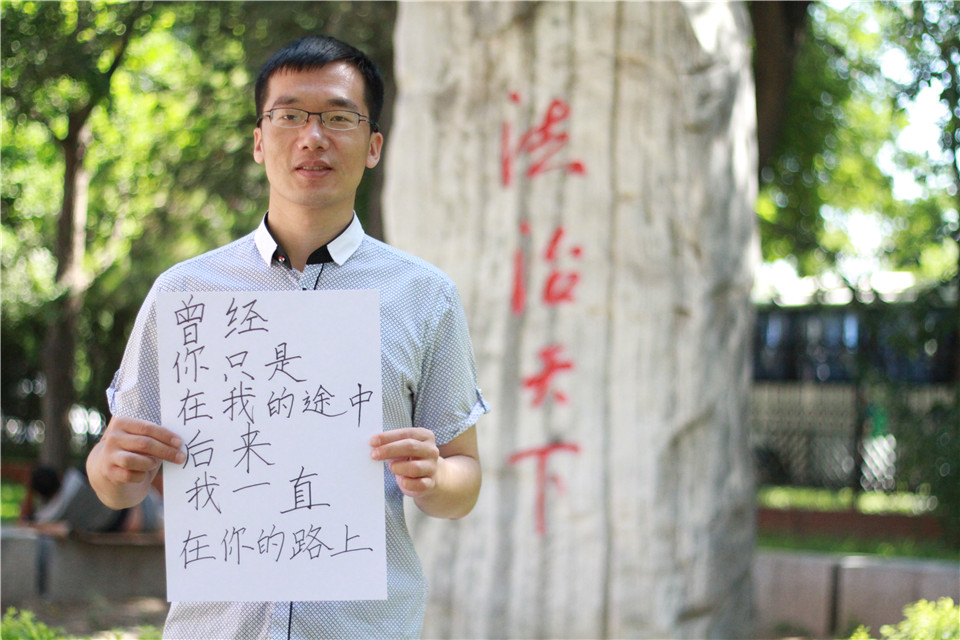 曾经
你只是
在我的途中
后来
我一直
在你的路上
法治天下